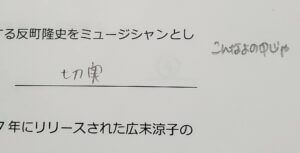 する反町隆史をミュージシャンとし
こんなよの中じゃ
切実
7年にリリースされた広末涼子の